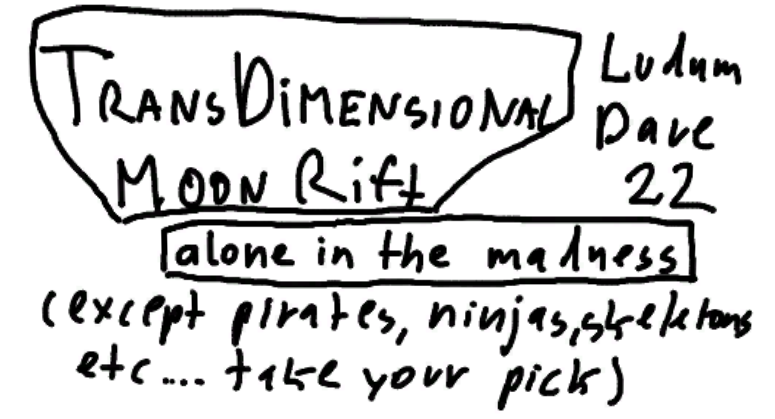 TRANSDiMENSIONAL
MOON Rift
Ludum
Dave
22
alone in the madness
(except pirates, ninjas,skeletons
etc.... take your pick)